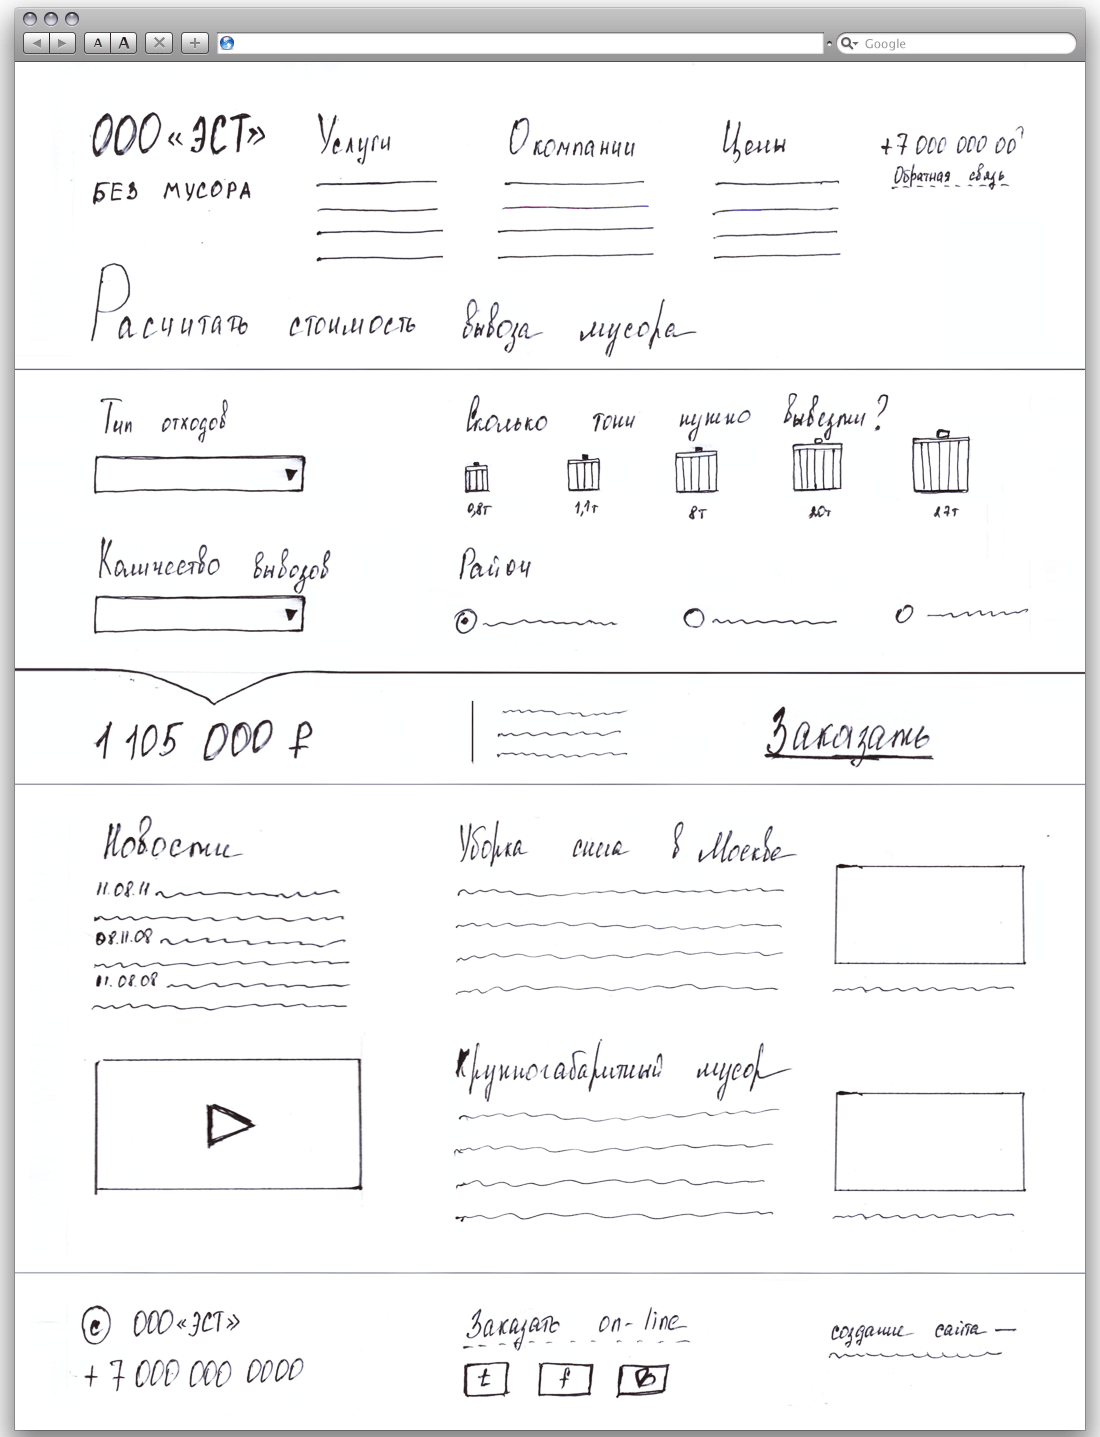 A A
Google
ООО «ЭСТ»
БЕЗ МУСОРА
Услуги
О компании
Цены
+7 000 000 00
Обратная связь
Расчитать стоимость вывоза мусора
Тип отходов
Сколько тонн нужно вывезти?
0,8т 1,1т 8т 20т 27т
Количество вывозов
Район
1 105 000 ₽
Заказать
Новости
11.08.11
08.11.08
11.08.08
Уборка снега в Москве
Крупногабаритный мусор
© ООО «ЭСТ»
+ 7 000 000 0000
Заказать on-line
t f В
создание сайта —